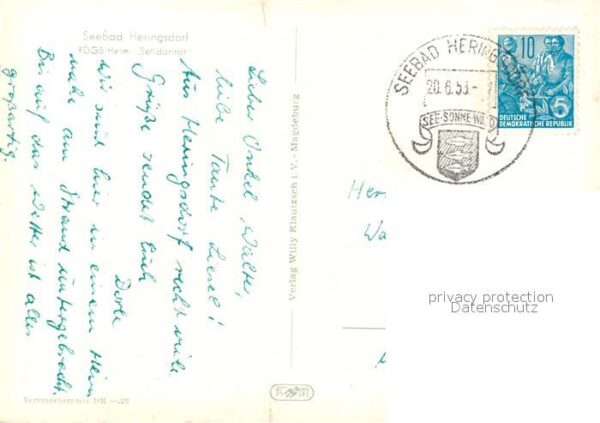 Seebad Heringsdorf
FDGB-Heim "Solidarität"
Lieber Onkel Walter,
liebe Tante Liesel!
Aus Heringsdorf recht viele
Grüße sendet Euch
Dorle
Wir sind hier in einem Heim
nahe am Strand untergebracht.
Bis auf das Wetter ist alles
großartig.
Verbraucherpreis DM —.20
Verlag Willy Klautzsch i. V. - Magdeburg
SEEBAD HERINGSDORF
20.6.59.-
SEE-SONNE-WALD
10
5
DEUTSCHE
DEMOKRATISCHE REPUBLIK
Her
Wa
privacy protection
Datenschutz